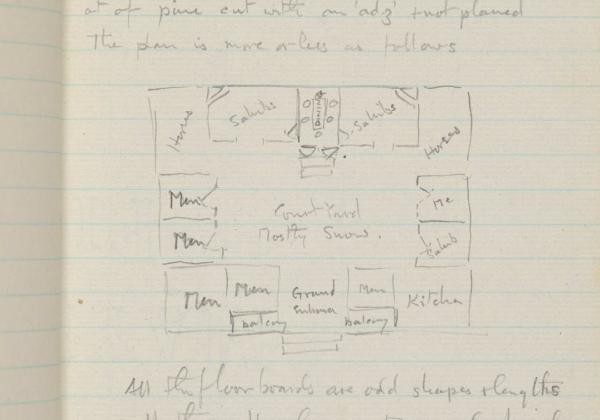 at of pine cut with an 'adz' + not planed
The plan is more or less as follows
Horses
Sahibs
Dining
J. Sahibs
Horses
Men
Me
Court Yard
Mostly Snow.
Men
Sahib
Men
Men
Grand
Men
Kitchen
balcony
balcony
All the floor boards are odd shapes + lengths